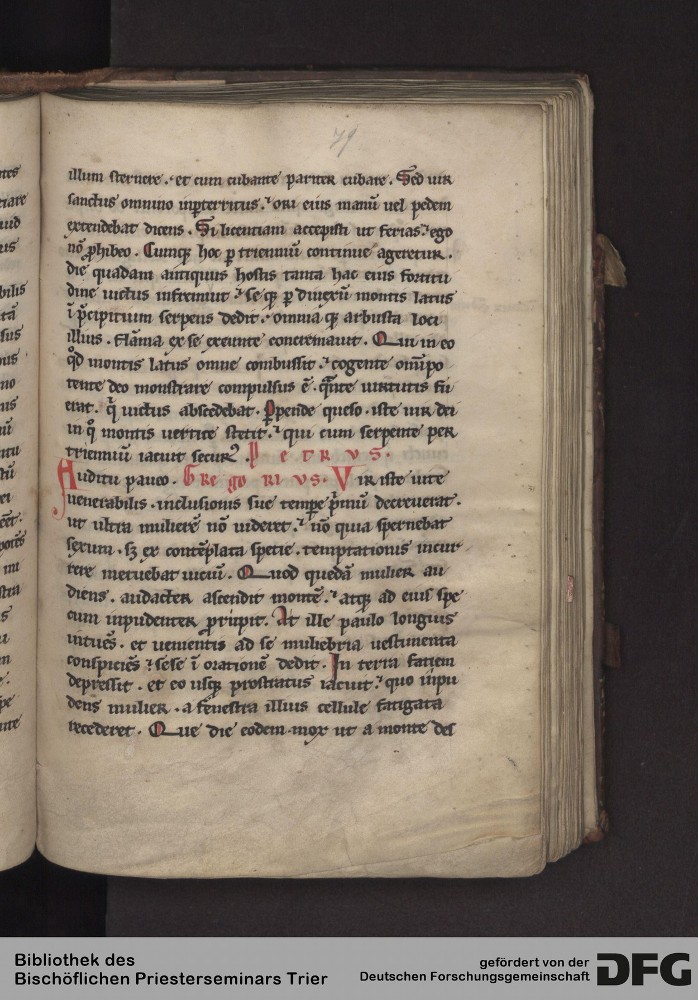 79
illum sternere. et cum cubante pariter cubare. Sed uir
sanctus omnino inperterritus. ori eius manū uel pedem
extendebat dicens. Si licentiam accepisti ut ferias. ego
nō ꝓhibeo. Cumqꝫ hoc ꝑ trienniū continue ageretur.
die quadam antiquus hostis tanta hac eius fortitu
dine uictus infremuit. se qꝫ ꝑ diuexū montis latus
ī p̄cipitium serpens dedit. omnia qꝫ arbusta loci
illius. flāma ex se exeunte concremauit. Qui in eo
qd̄ montis latus omne combussit. cogente omīpo
tente deo monstrare compulsus ē. q̄nte uirtutis fu
erat. q̄ uictus abscedebat. Ꝑpende queso. iste uir dei
in qͦ montis uertice stetit. qui cum serpente per
triennium iacuit securꝰ. PETRVS.
Auditu paueo. GREGORIVS. Vir iste uite
uenerabilis. inclusionis sue tempe p̄mū decreuerat.
ut ultra mulierē nō uideret. nō quia spernebat
sexum. sꝫ ex contēplata specie. temptationis incur
rere metuebat uiciū. Quod quedā mulier au
diens. audacter ascendit montē. atqꝫ ad eius spe
cum inpudenter ꝓrupit. At ille paulo longius
intuēs. et uenientis ad se muliebria uestimenta
conspiciēs sese ī orationē dedit. In terra faciem
depressit. et eo usqꝫ prostratus iacuit. quo inpu
dens mulier. a fenestra illius cellule fatigata
recederet. Que die eodem. mox ut a monte des
Bibliothek des
Bischöflichen Priesterseminars Trier
gefördert von der
Deutschen Forschungsgemeinschaft
DFG